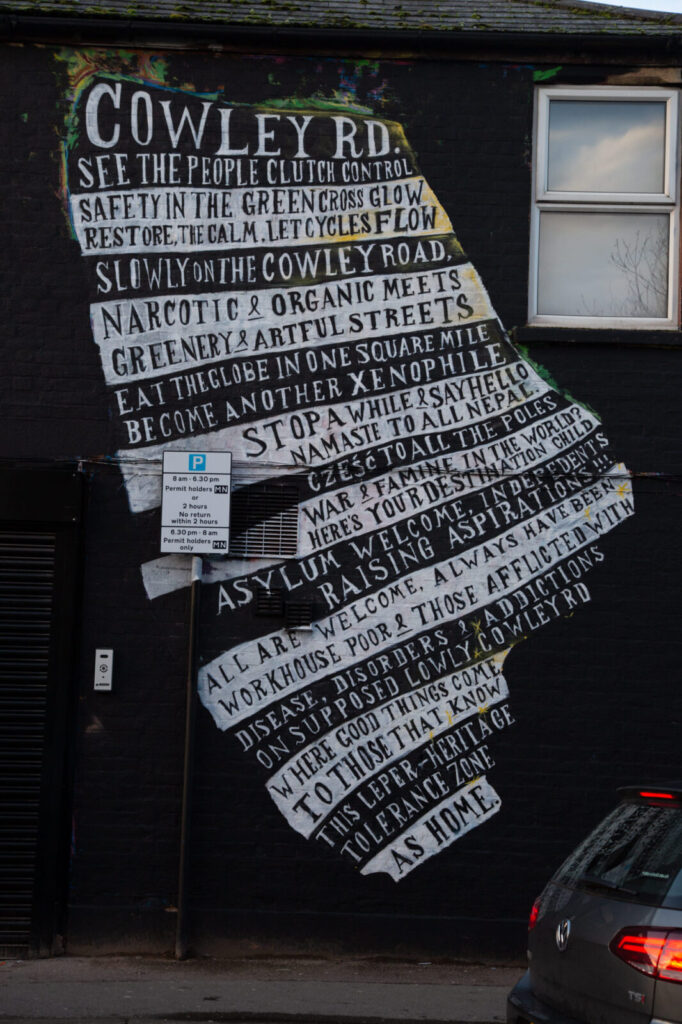 COWLEY RD.
SEE THE PEOPLE CLUTCH CONTROL
SAFETY IN THE GREEN CROSS GLOW
RESTORE, THE CALM, LET CYCLES FLOW
SLOWLY ON THE COWLEY ROAD,
NARCOTIC & ORGANIC MEETS
GREENERY & ARTFUL STREETS
EAT THE GLOBE IN ONE SQUARE MILE
BECOME ANOTHER XENOPHILE,
STOP A WHILE & SAY HELLO
NAMASTE TO ALL NEPAL,
CZEŚĆ TO ALL THE POLES
WAR & FAMINE IN THE WORLD?
HERE'S YOUR DESTINATION CHILD
ASYLUM WELCOME, INDEPENDENTS
RAISING ASPIRATIONS...
ALL ARE WELCOME, ALWAYS HAVE BEEN
WORKHOUSE POOR & THOSE AFFLICTED WITH
DISEASE, DISORDERS & ADDICTIONS
ON SUPPOSED LOWLY COWLEY RD
WHERE GOOD THINGS COME,
TO THOSE THAT KNOW
THIS LEPER-HERITAGE
TOLERANCE ZONE
AS HOME.
P
8 am - 6.30 pm
Permit holders MN
or
2 hours
No return
within 2 hours
6.30 pm - 8 am
Permit holders
only MN
TSI